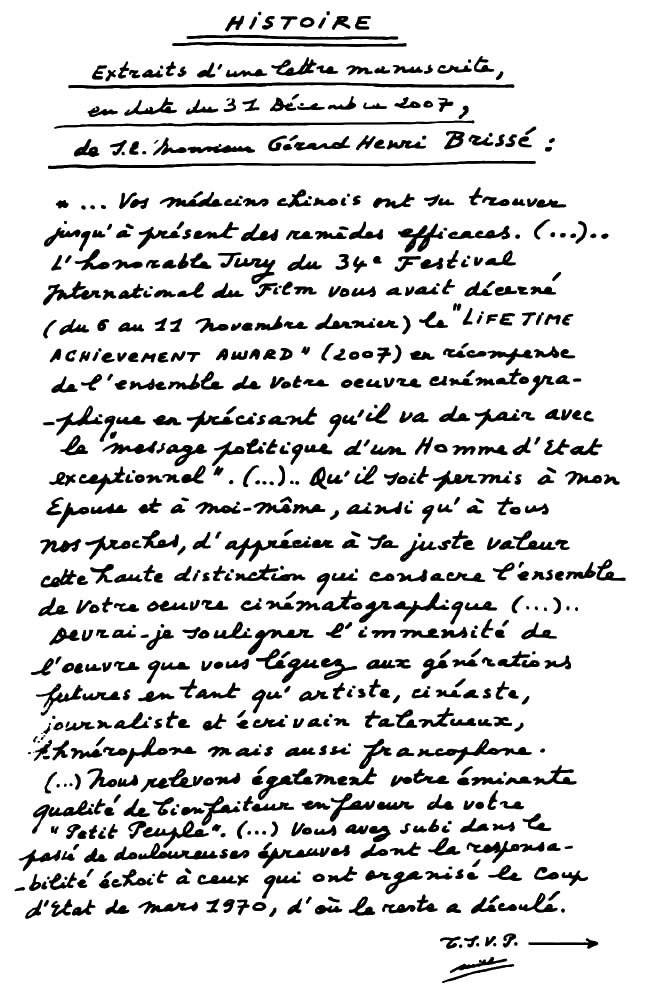 HISTOIRE
Extraits d'une lettre manuscrite,
en date du 31 Décembre 2007,
de S.E. Monsieur Gérard Henri Brissé :
" ... Vos médecins chinois ont su trouver
jusqu'à présent des remèdes efficaces. (...)..
L'honorable Jury du 34e Festival
International du Film vous avait décerné
(du 6 au 11 novembre dernier) le "LIFE TIME
ACHIEVEMENT AWARD" (2007) en récompense
de l'ensemble de Votre oeuvre cinématogra-
-phique en précisant qu'il va de pair avec
le "message politique d'un Homme d'Etat
exceptionnel". (...).. Qu'il soit permis à mon
Epouse et à moi-même, ainsi qu'à tous
nos proches, d'apprécier à sa juste valeur
cette haute distinction qui consacre l'ensemble
de Votre oeuvre cinématographique (...)..
Devrai-je souligner l'immensité de
l'oeuvre que vous léguez aux générations
futures en tant qu'artiste, cinéaste,
journaliste et écrivain talentueux,
khmérophone mais aussi francophone.
(...) Nous relevons également votre éminente
qualité de bienfaiteur en faveur de votre
"Petit Peuple". (...) Vous avez subi dans le
passé de douloureuses épreuves dont la responsa-
-bilité échoit à ceux qui ont organisé le Coup
d'Etat de mars 1970, d'où le reste a découlé.
T.S.V.P.